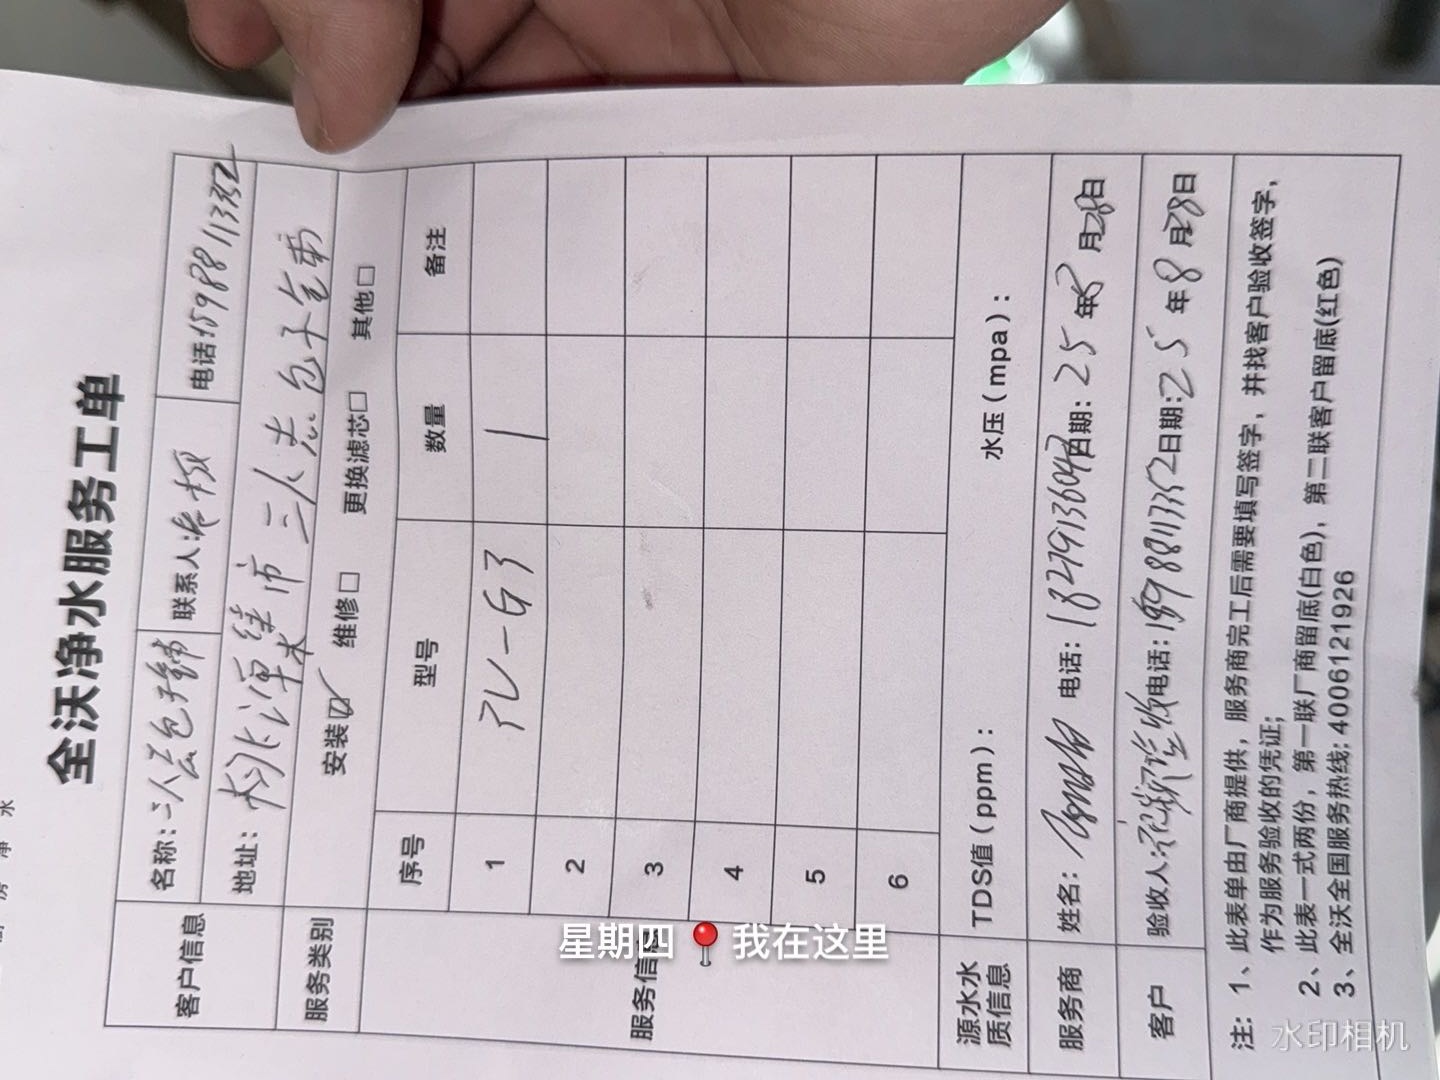 全沃净水服务工单
客户信息
名称: 联系人: 电话:15988113352
地址: 市 三人 包子
服务类别
安装☑ 维修□ 更换滤芯□ 其他□
服务信息
序号 型号 数量 备注
1 RV-G3 1
2
3
4
5
6
源水水质信息
TDS值(ppm): 水压(mpa):
服务商
姓名: 电话: 日期: 25 年8 月28日
客户
验收人: 电话: 日期: 25 年8 月28日
注: 1、此表单由厂商提供,服务商完工后需要填写签字,并找客户验收签字,
作为服务验收的凭证;
2、此表一式两份,第一联厂商留底(白色),第二联客户留底(红色)
3、全沃全国服务热线: 4006121926
星期四 📍 我在这里
水印相机